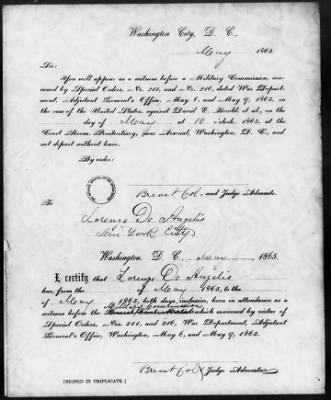 Washington City, D. C.,
May 1865.
Sir:
You will appear as a witness before a Military Commission, con-
vened by Special Orders, No. 211, and No. 216, dated War Depart-
ment, Adjutant General's Office, May 6, and May 9, 1865, in
the case of the United States, against David E. Herold et al., on the
day of May at 10 o'clock, 1865, at the
Court Room, Penitentiary, near Arsenal, Washington, D. C., and
not depart without leave.
By order:
Brevet Col. and Judge Advocate.
To
Lorenzo De Angelis
New York City
Washington, D. C., May 1865.
I certify that Lorenzo De Angelis
has, from the of May 1865, to the
of May 1865, both days, inclusive, been in attendance as a
Military Commission
witness before the which convened by virtue of
Special Orders, Nos. 211, and 216, War Department, Adjutant
General's Office, Washington, May 6, and May 9, 1865.
Brevet Col & Judge Advocate.
[SIGNED IN TRIPLICATE.]